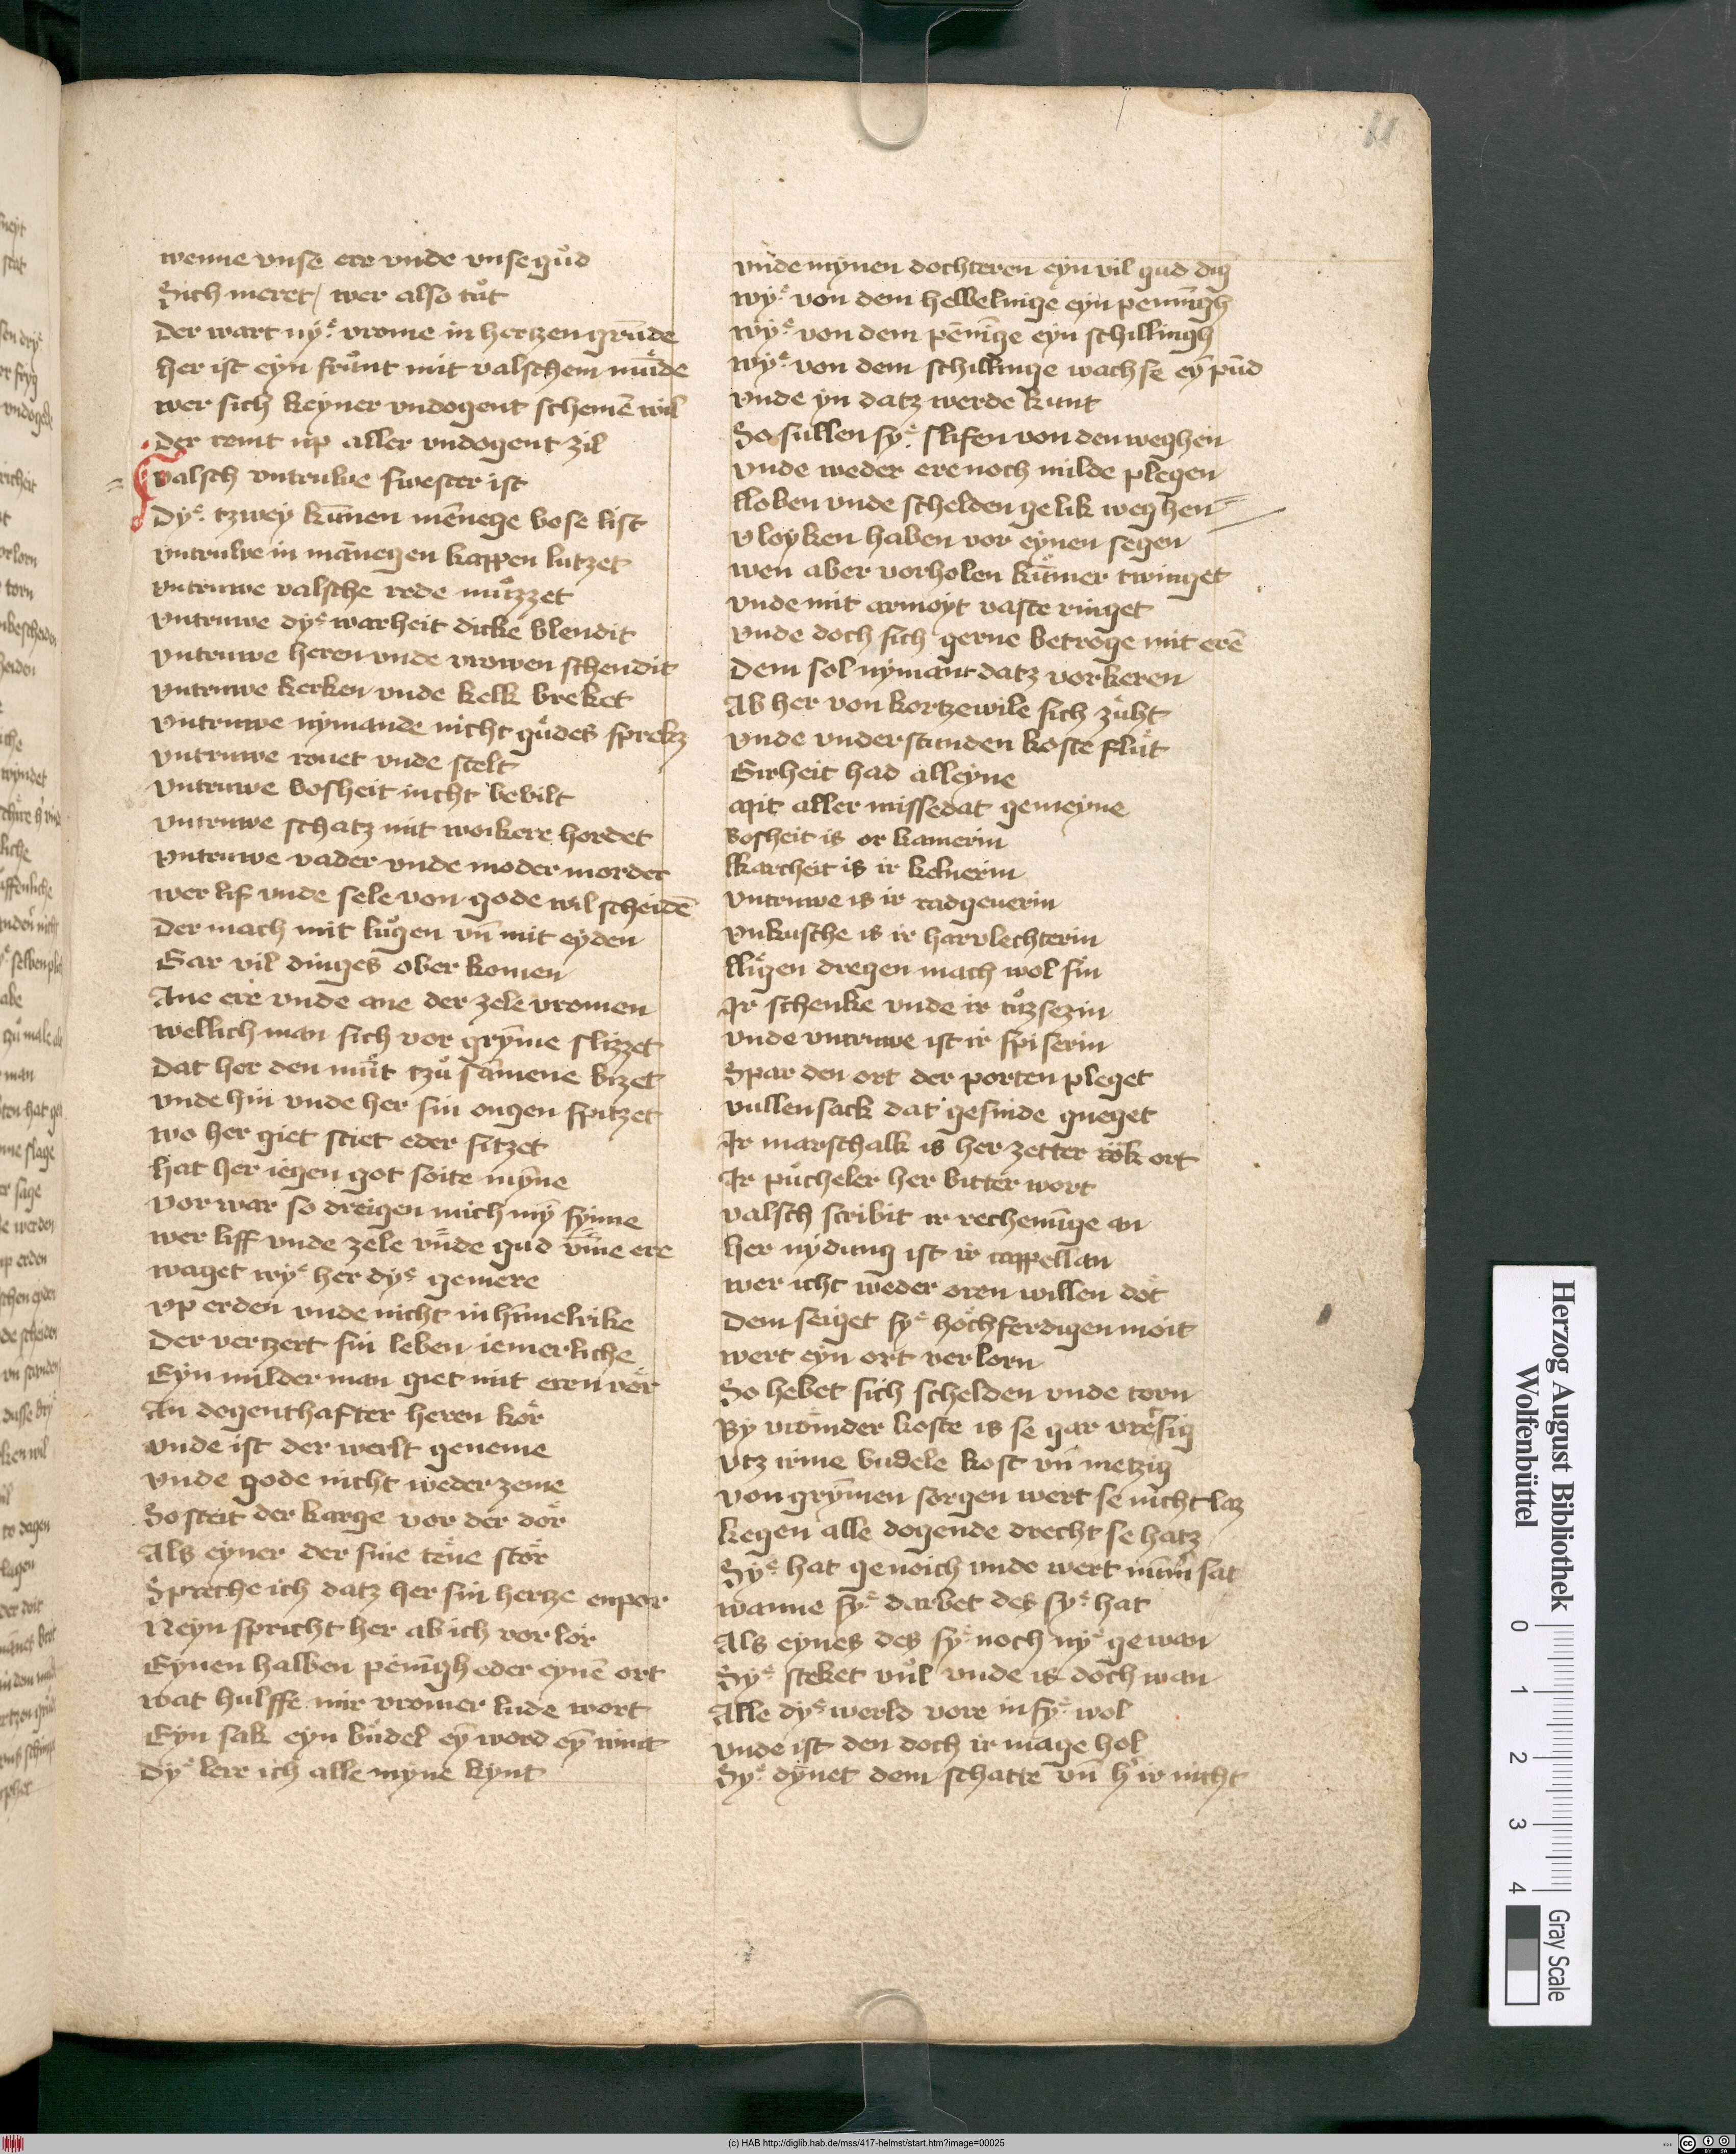 11
wenne vnse ere vnde vnse guͦd
Sich meret / wer also tuͦt
Der wart nyͤ vrome in hertzen grūde
her ist eyn fruͤnt mit valschem muͤde
wer sich keyner vndogent schemē wil
Der remt up aller vndogent zil
valsch vntruwe swester ist
Dyͤ tzwey kūnen mēnege bose list
vntruwe in mānegen kappen lutzet
vntruwe valsche rede muͦtzzet
vntruwe dyͤ warheit dicke blendit
vntruwe heren vnde vrowen schendit
vntruwe kerken vnde kelk breket
vntruwe nymande nicht guͤdes sprekz
vntruwe rouet vnde stelt
vntruwe bosheit nicht bevilt
vntruwe schatz mit wokere hordet
vntruwe vader vnde moder mordet
wer lif vnde sele von gode wil scheidē
Der mach mit luͦgen vn̄ mit eyden
Gar vil dinges ober komen
Ane ere vnde ane der zele vromen
wellich man sich vor gryme slizzet
Dat her den muͤt tzuͦ samene bizet
vnde hin vnde her sin ougen spitzet
wo her giet stiet eder sitzet
hat her iegen got soite myn̄e
vor war so dreigen mich my̅ synne
wer liff vnde zele vnde gud vn̄ne ere
waget wyͤ her dyͤ gemere
vp erden vnde nicht in hīmelrike
Der vertzert sin leben iemerliche
Eyn milder man giet mit eren voͤr
An degenthafter heren koͤr
vnde ist der werlt geneme
vnde gode nicht weder zeme
So steit der karge vor der doͤr
Als eyner der sine tene stoͤr
Spreche ich datz her sin hertze enpor
Neyn spricht her ab ich vor loͤr
Eynen halben pēnīgh eder eynē ort
wat hulffe mir vromer lude wort
Eyn sak eyn buͤdel ey̅ word ey̅ wint
Dyͤ lere ich alle myne kynt
vnde mynen dochteren eyn vil gud dīg
wyͤ von dem hellelinge eyn pennīgh
wyͤ von dem pēnīge eyn schillingh
wyͤ von dem schillinge wachse ey̅ pūd
vnde yn datz werde kunt
So sullen syͤ slifen von den weghen
vnde weder ere noch milde plegen
lloben vnde schelden gelik weghen
vloyken haben vor eynen segen
wen aber vorholen kuͤmer twinget
vnde mit armoyt vaste ringet
vnde doch sich gerne betroge mit erē
Dem sol nymant datz vorkeren
Ab her von kortzewile sich zuͤht
vnde vnderstunden koste fluͤt
Girheit had alleyne
Mit aller missedat gemeyne
Bosheit is or kamerin
kkarcheit is ir kelnerin
vntruwe is ir radgeuerin
vnkusche is ir harvlechterin
lluͤgen dregen mach wol sin
Ir schenke vnde ir tuͦzsezin
vnde vntruwe ist ir spiserin
Spar den ort der porten pleget
vullensack dat gesinde queget
Ir marschalk is her zetter roͤk ort
Ir puͤcheler her bitter wort
valsch scribit ir rechenūge an
her nydung ist ir cappellan
wer icht weder oren willen doͤt
Dem seiget syͤ hochferdigen moit
wert eyn ort verlorn
So hebet sich schelden vnde torn
By vroͤmder koste is se gar vresig
vtz irme budele kost vn̄ metzig
von grymen sorgen wert se nicht laz
kegen alle dogende drecht se hatz
Syͤ hat genoich vnde wert nūm̄ sat
wanne syͤ darbet des syͤ hat
Als eynes des syͤ noch nyͤ gewan
Syͤ steket vuͦl vnde is doch wan
Alle dyͤ werld vore in syͤ wol
vnde ist den doch ir mage hol
Syͤ dynet dem schatte vn̄ h' ir nicht
Herzog August Bibliothek
Wolfenbüttel
0 1 2 3 4
Gray Scale
(c) HAB http://diglib.hab.de/mss/417-helmst/start.htm?image=00025